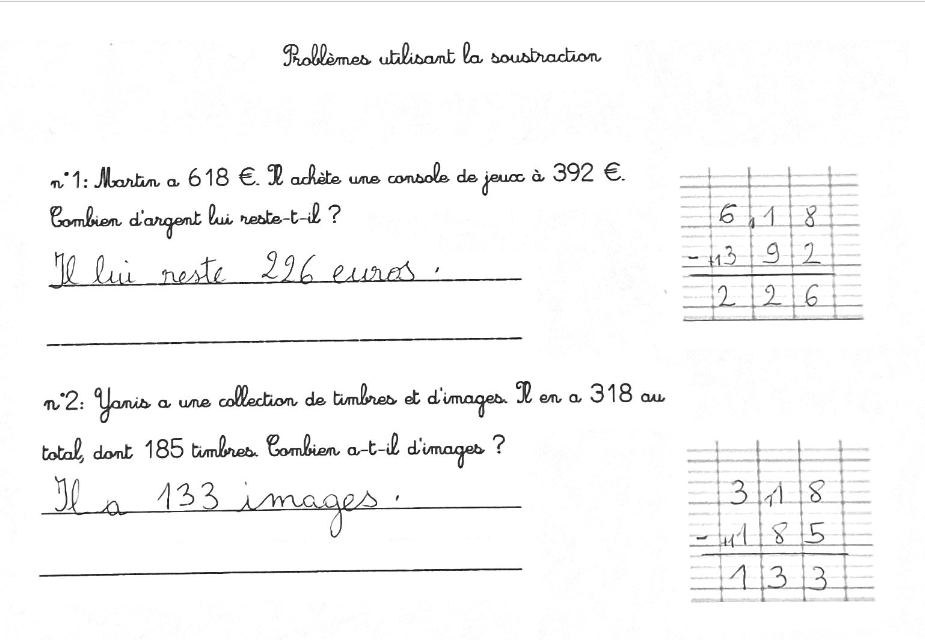 Problèmes utilisant la soustraction
n°1: Martin a 618 €. Il achète une console de jeux à 392 €.
Combien d'argent lui reste-t-il ?
Il lui reste 226 euros.
6 11 8
- +13 9 2
2 2 6
n°2: Yanis a une collection de timbres et d'images. Il en a 318 au
total, dont 185 timbres. Combien a-t-il d'images ?
Il a 133 images.
3 11 8
- +11 8 5
1 3 3